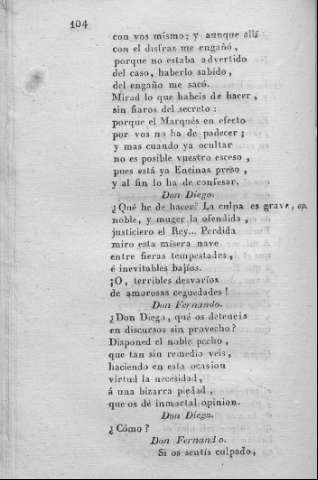 104
con vos mismo; y aunque allí
con el disfras me engañó,
porque no estaba advertido
del caso, haberlo sabido,
del engaño me sacó.
Mirad lo que habeis de hacer,
sin fiaros del secreto:
porque el Marqués en efecto
por vos no ha de padecer;
y mas cuando ya ocultar
no es posible vuestro esceso,
pues está ya Encinas preso,
y al fin lo ha de confesar.
Don Diego.
¿Qué he de hacer? La culpa es grave,
noble, y muger la ofendida,
justiciero el Rey... Perdida
miro esta mísera nave
entre fieras tempestades,
é inevitables bajíos.
¡O, terribles desvaríos
de amorosas ceguedades!
Don Fernando.
¿Don Diego, qué os deteneis
en discursos sin provecho?
Disponed el noble pecho,
que tan sin remedio veis,
haciendo en esta ocasion
virtud la necesidad,
á una bizarra piedad,
que os dé inmortal opinion.
Don Diego.
¿Cómo?
Don Fernando.
Si os sentís culpado,